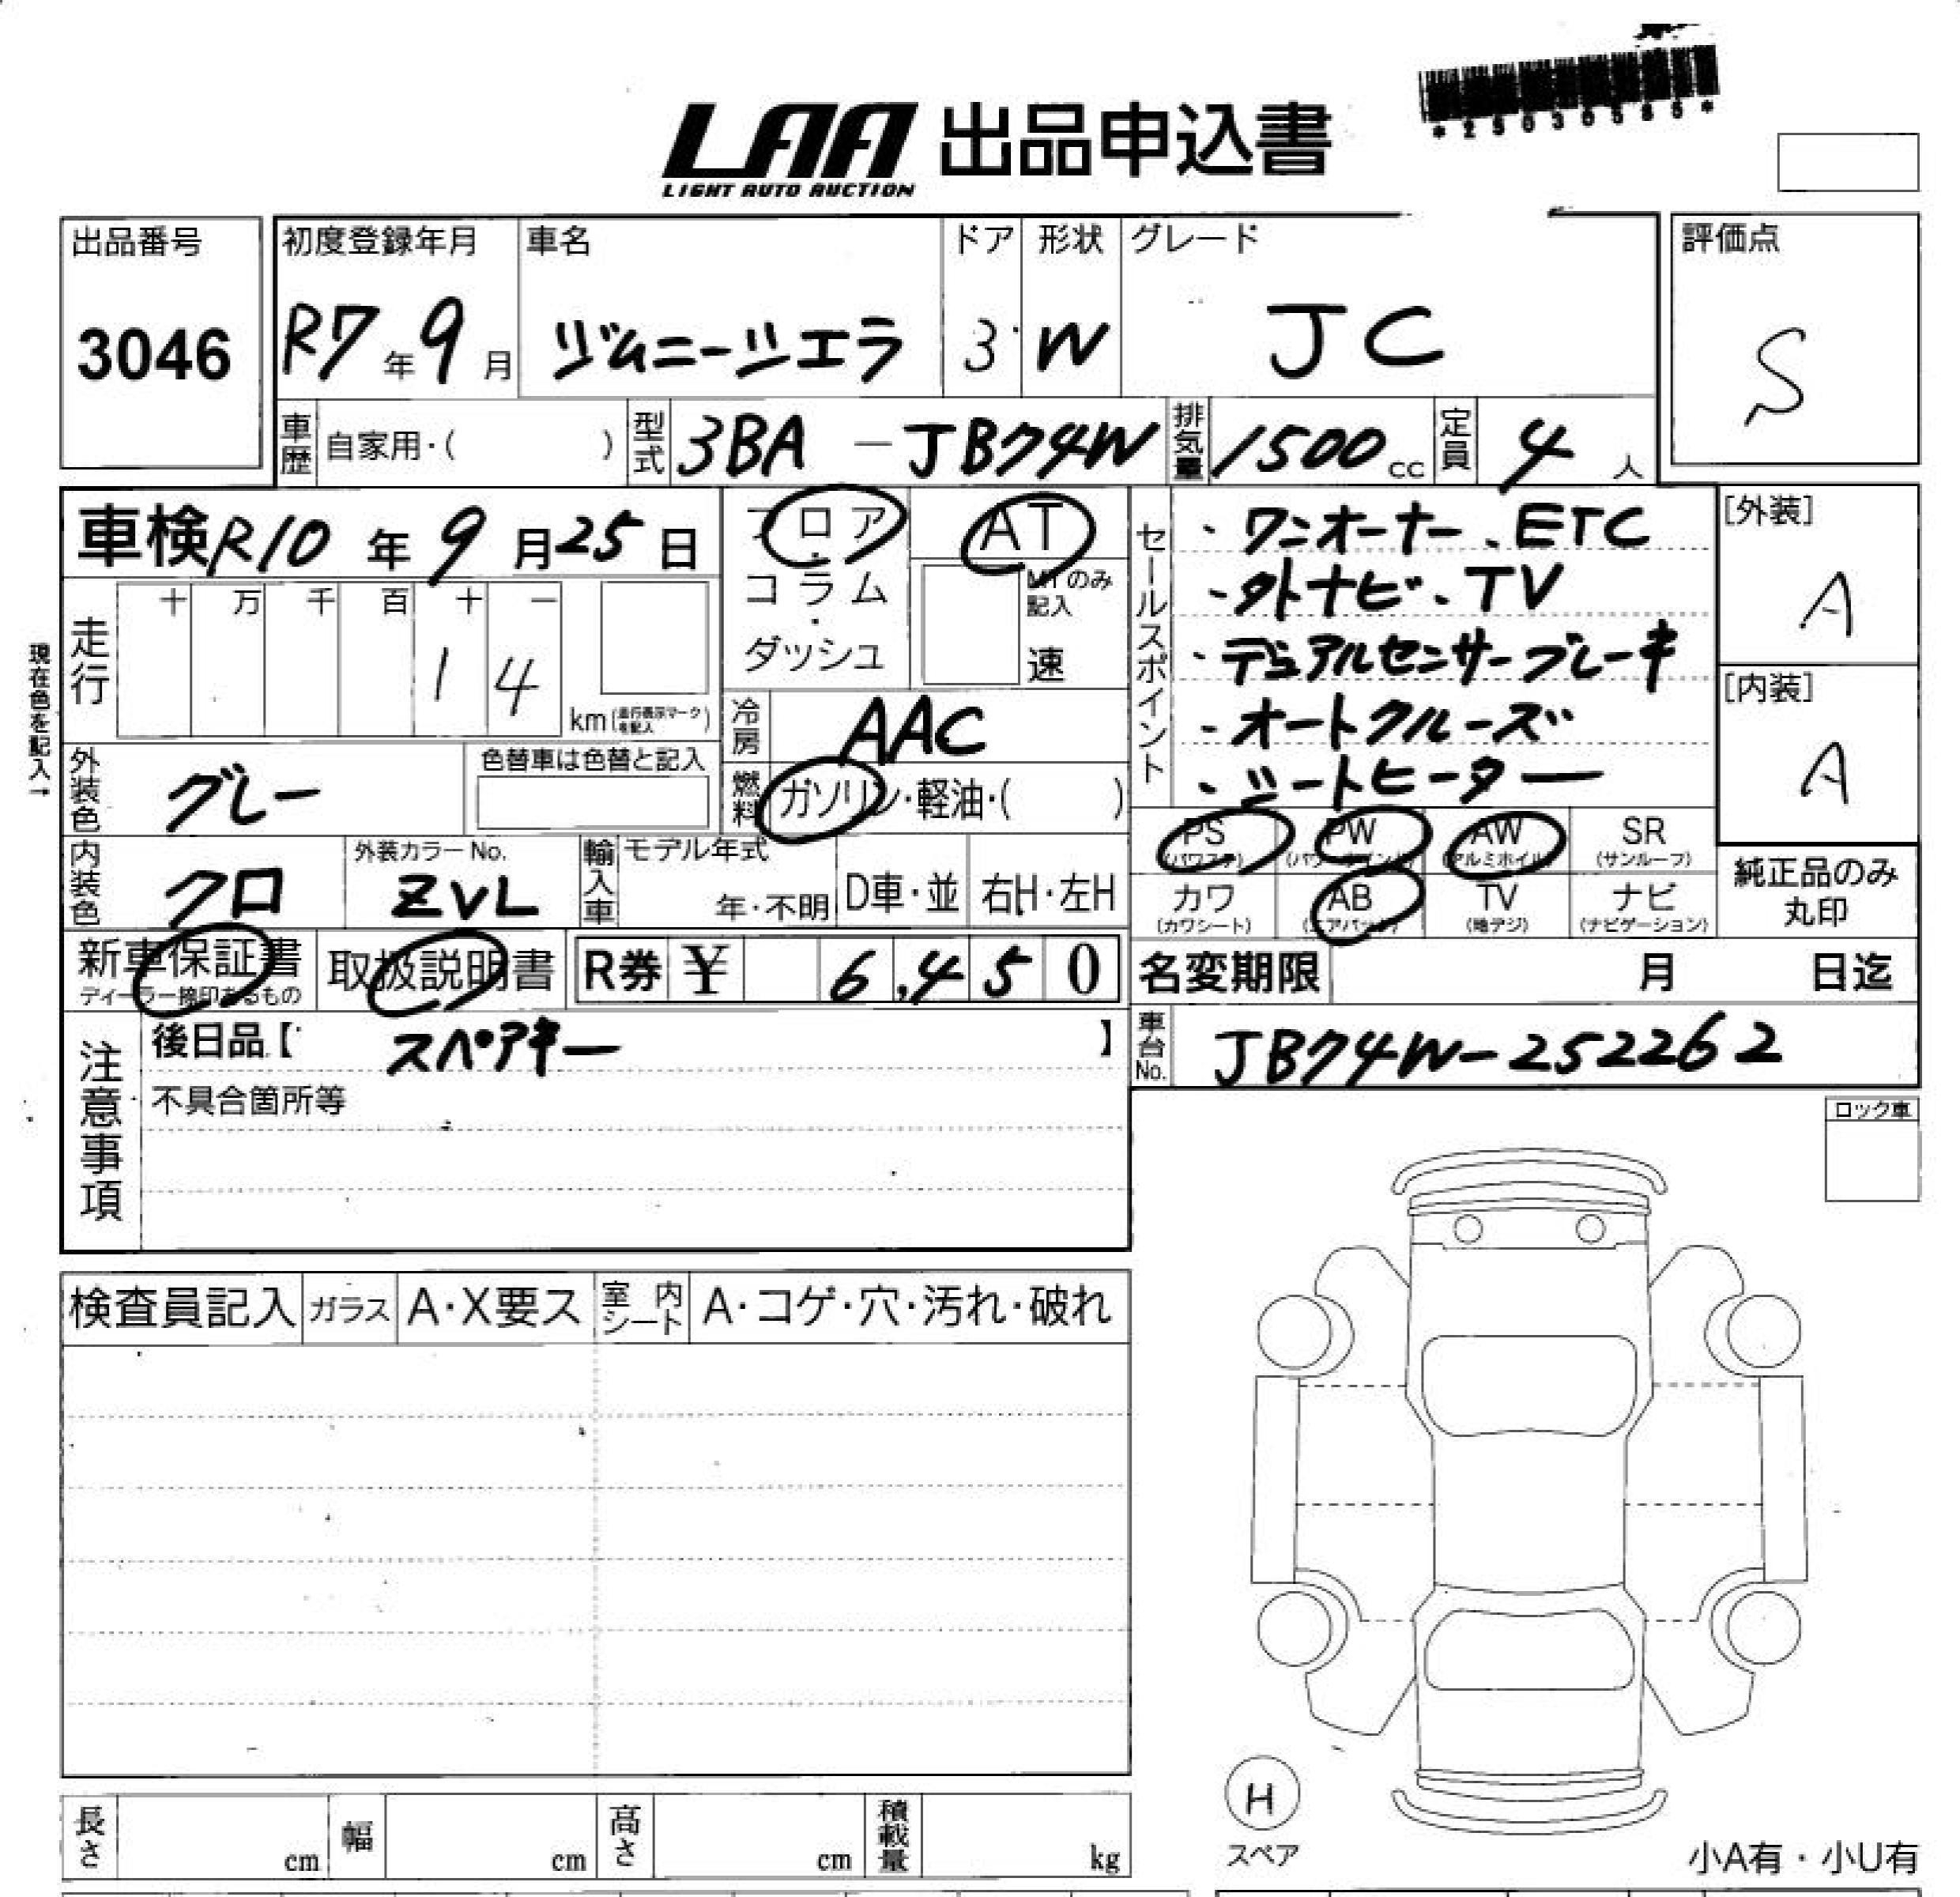 *25030580*
LAA 出品申込書
LIGHT AUTO AUCTION
出品番号 3046
初度登録年月 R7年9月
車名 ジムニーシエラ
ドア 3
形状 W
グレード JC
評価点 S
車歴 自家用・( )
型式 3BA-JB74W
排気量 1500cc
定員 4人
車検 R10年9月25日
フロア・コラム・ダッシュ
AT
MTのみ記入 速
セールスポイント
・ワンオーナー、ETC
・外ナビ・TV
・デュアルセンサーブレーキ
・オートクルーズ
・シートヒーター
[外装] A
[内装] A
現在色を記入→
走行 十 万 千 百 十 一
14 km(走行表示マークを記入)
冷房 AAC
燃料 ガソリン・軽油・( )
外装色 グレー
色替車は色替と記入
内装色 クロ
外装カラーNo. ZVL
輸入車 モデル年式 年・不明 D車・並 右H・左H
PS (パワステ) PW (パワーウインド) AW (アルミホイル) SR (サンルーフ)
カワ (カワシート) AB (エアバック) TV (地デジ) ナビ (ナビゲーション)
純正品のみ丸印
新車保証書 ディーラー捺印あるもの
取扱説明書
R券 ¥ 6,450
名変期限 月 日迄
車台No. JB74W-252262
注意事項
後日品【 スペアキー 】
不具合箇所等
ロック車
検査員記入 ガラス A・X要ス 室内シート A・コゲ・穴・汚れ・破れ
長さ cm 幅 cm 高さ cm 積載量 kg
H
スペア
小A有・小U有